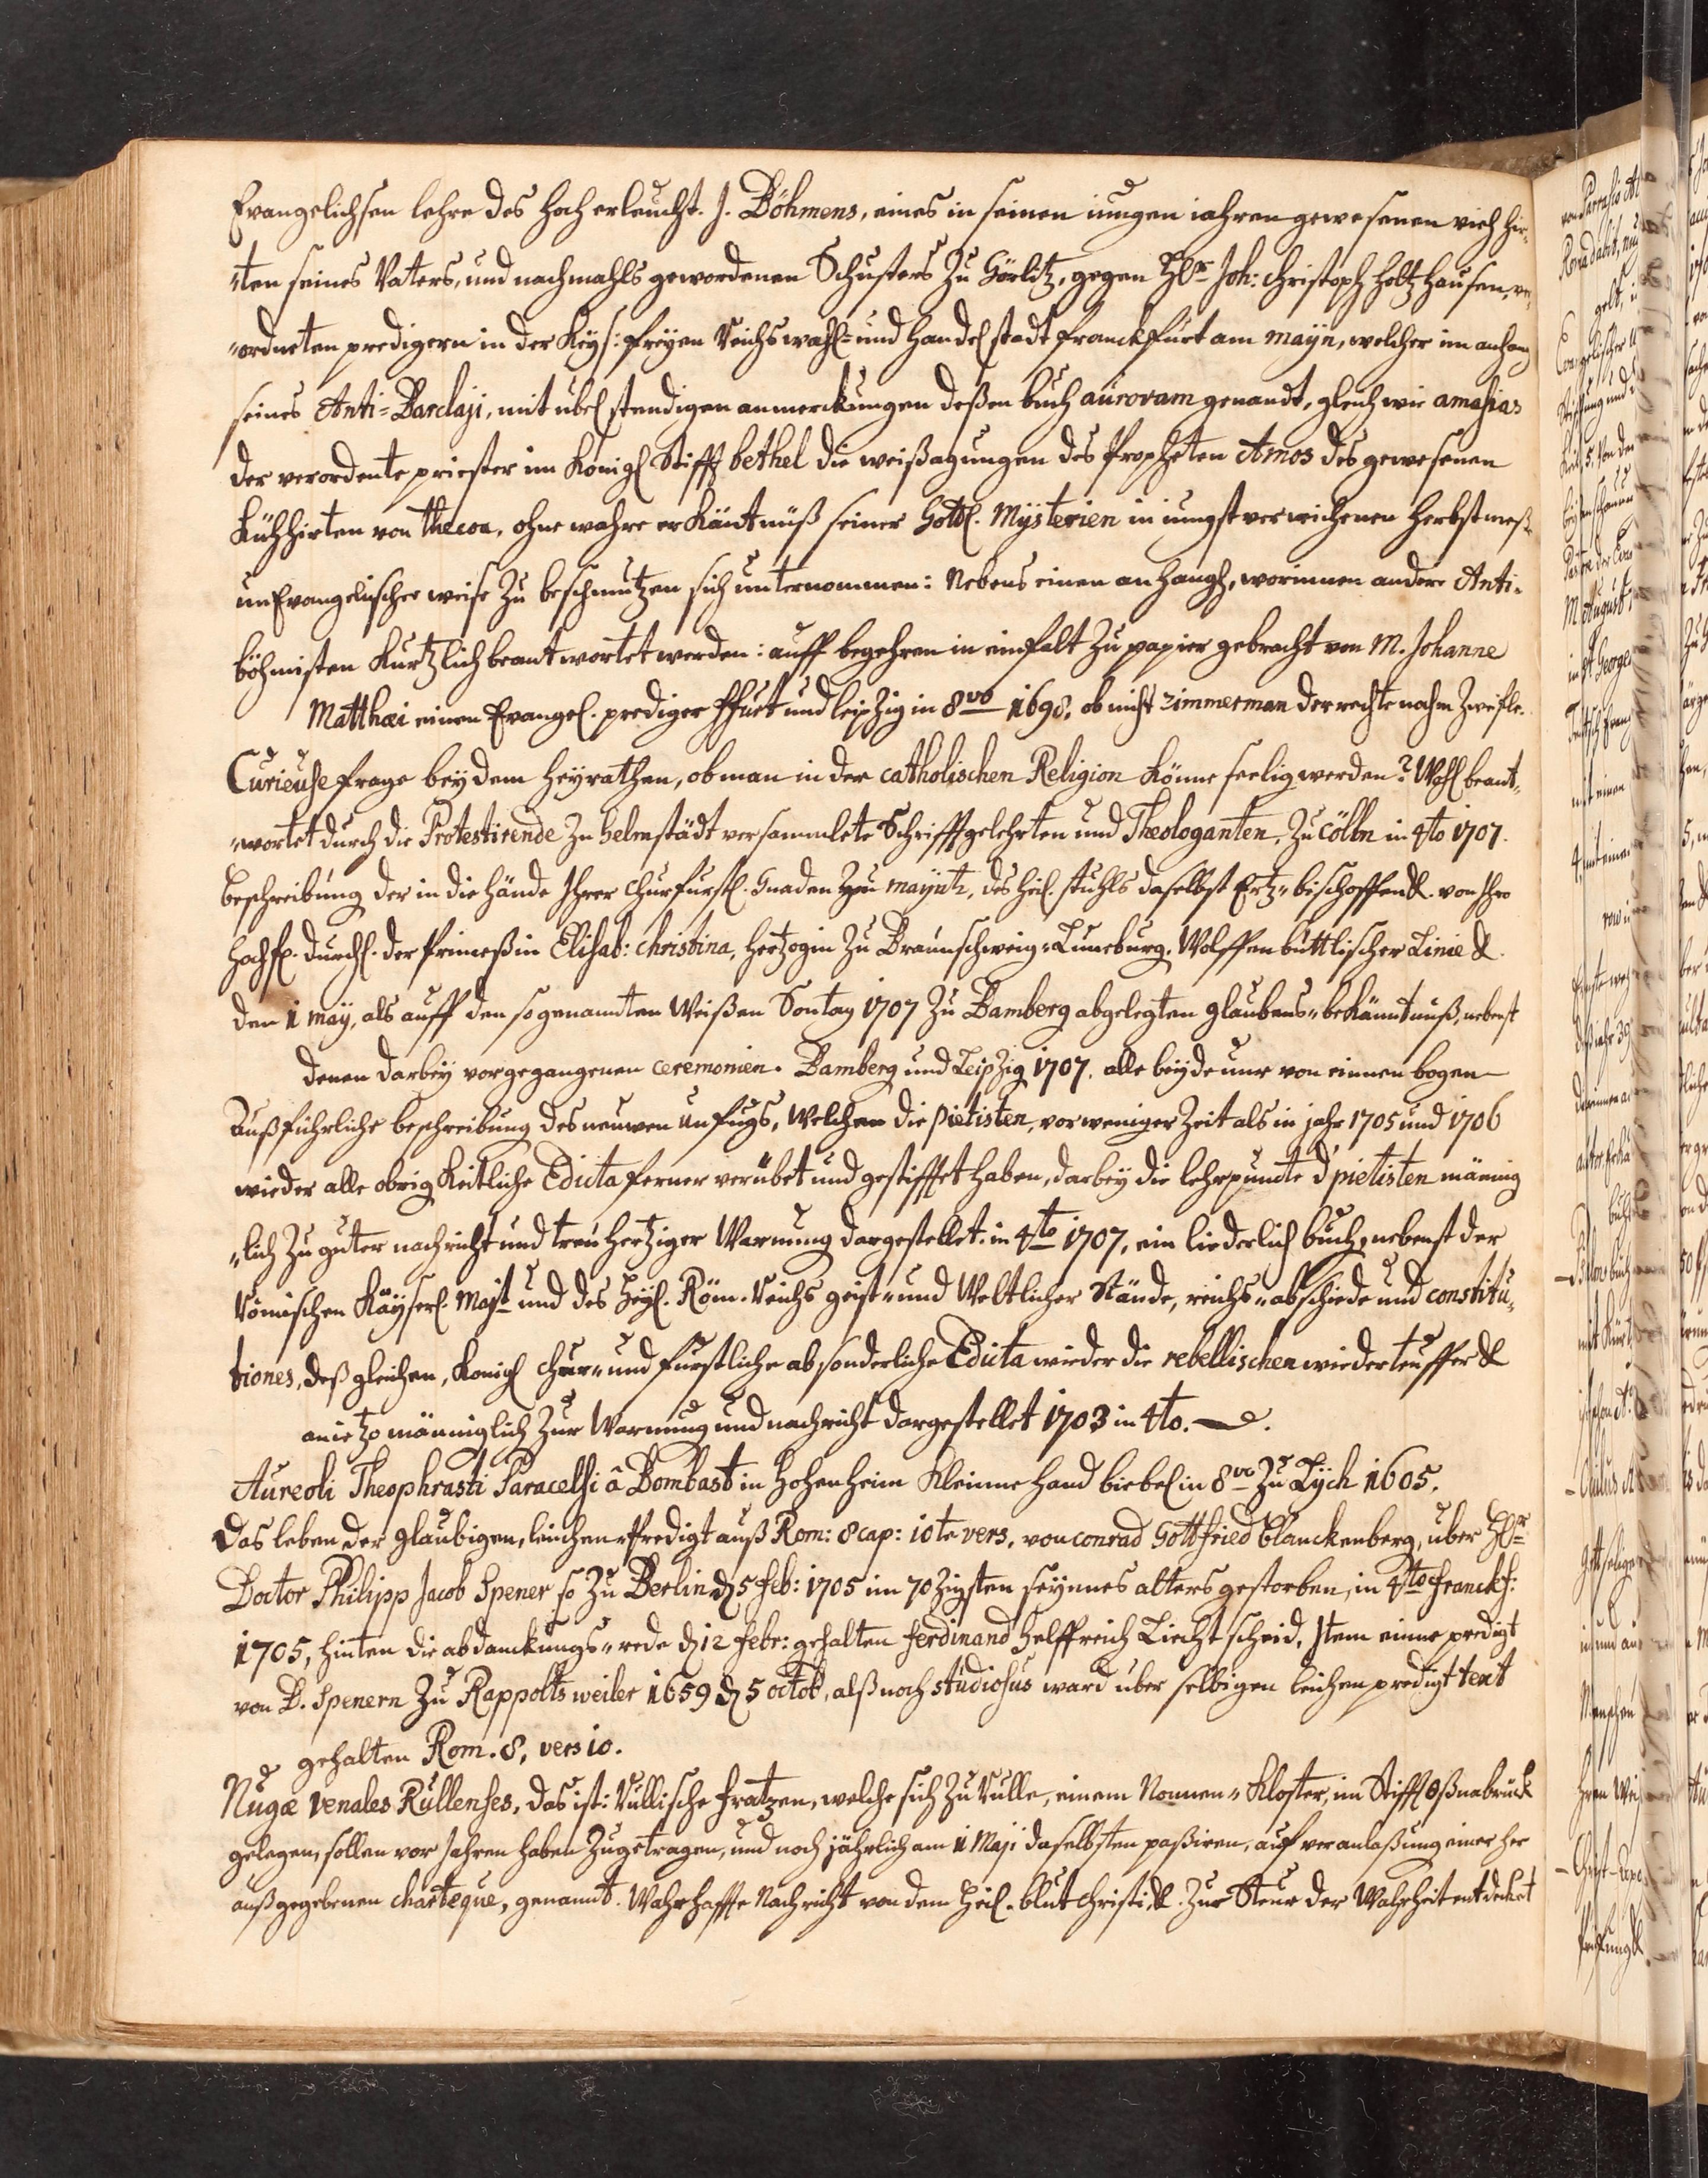 Evangelichsen lehre des hoch erleucht. J. Böhmens, eines in seinen iungen iahren gewesenen vieh hir,
"ten seines Vaters, und nachmahls gewordenen Schusters Zu Görlitz, gegen Hln Joh: Christoph Holtzhausen, ver,
"ordneten predigern in der Keys: freyen Reichs wahl= und handel stadt franckfurt am mayn, welcher im anhang
seines Anti=Barclaji, mit ubel stendigen anmerckungen deßen buch auroram genandt, gleich wie amasias
der verordente priester im Königl Stifft bethel die weißagungen des Propheten Amos des gewesenen
Kühhirten von thecoa, ohne wahre erkäntnüß seiner Gottl. Mysterien in iungst verwichenen herbstmeß
unEvangelischer weise Zu beschmutzen sich unternommen: Nebens einen anhangh, worinnen andere Anti=
böhmisten kurtzlich beantwortet werden: auff begehren in einfalt Zu papier gebracht von M. Johanne
Matthæi einen Evangel. prediger ffurt und leipzig in 8vo 1698. ob nicht zimmerman der rechte nahm Zweifle.
Curieuse frage bey dem heyrathen, ob man in der catholischen Religion könne seelig werden? Wohl beant,
"wortet durch die Protestirende Zu helmstädt versammlete Schrifftgelehrten und Theologanten. Zu Cölln in 4to 1707.
beschreibung der in die hände Ihrer Churfurstl. Gnaden Zu mayntz, des heil. stuhls daselbst Ertz=bischoffen &. von Ihro
Hochf. durchl. der Princeßin Elisab: Christina, hertzogin Zu Braunschweig=Luneburg. Wolffenbüttlischer Linie &.
den 1 may, als auff den so genannten Weißen Sontag 1707 Zu Bamberg abgelegten glaubens=bekäntnuß, nebenst
denen darbey vorgegangenen ceremonien. Bamberg und Leipzig 1707. alle beyde nur von einnen bogen
Außführliche beschreibung des neuwen unfugs, Welchen die pietisten, vor weniger Zeit als in jahr 1705 und 1706
wieder alle obrigkeitliche Edicta ferner verübet und gestifftet haben, darbey die lehrpuncte d' pietisten männig
"lich Zu guter nachricht und treuhertziger Warnung dargestellet. in 4to 1707, ein liederlich buch, nebenst der
Römischen Käyserl. Majt und des heyl. Röm. Reichs geist= und Weltlicher Stände, reichs=abschiede und constitu,
tiones, deßgleichen, Königl chur= und furstliche absonderliche Edicta wieder die rebellischen wiederteuffer &
anietzo männiglich Zur Warnung und nachricht dargestellet 1703 in 4to.
Aureoli Theophrasti Paracelsi â Bombast in hohenheim kleinne hand biebel in 8vo Zu Lych 1605.
Das leben der glaubigen, leichen Predigt auß Rom: 8 cap: 10te vers, von conrad Gottfried blanckenberg, uber Hln
Doctor Philipp Jacob Spener so Zu Berlin d. 5 feb: 1705 im 70zigsten seynnes alters gestorben, in 4to franckf:
1705, hinten die abdanckungs=rede d. 12 febr: gehalten ferdinand helffreich Liechtscheid, Item einne predigt
von D. Spenern Zu Rappoltsweiler 1659 d. 5 octob. alß noch studiosus ward uber selbigen leichen predigt text
gehalten Rom. 8, vers 10.
Nugæ venales Rullenses, das ist: Rullische fratzen, welche sich Zu Rulle, einem Nonnen=Kloster, im Stifft Oßnabruck
gelegen, sollen vor Jahren haben Zugetragen, und noch jährlich am 1 Maji daselbsten paßiren, auf veranlaßung einer her
außgegebenen charteque, genannt. Wahrhaffte Nachricht von dem heil. blut Christi &. Zur Steur der Wahrheit entdecket